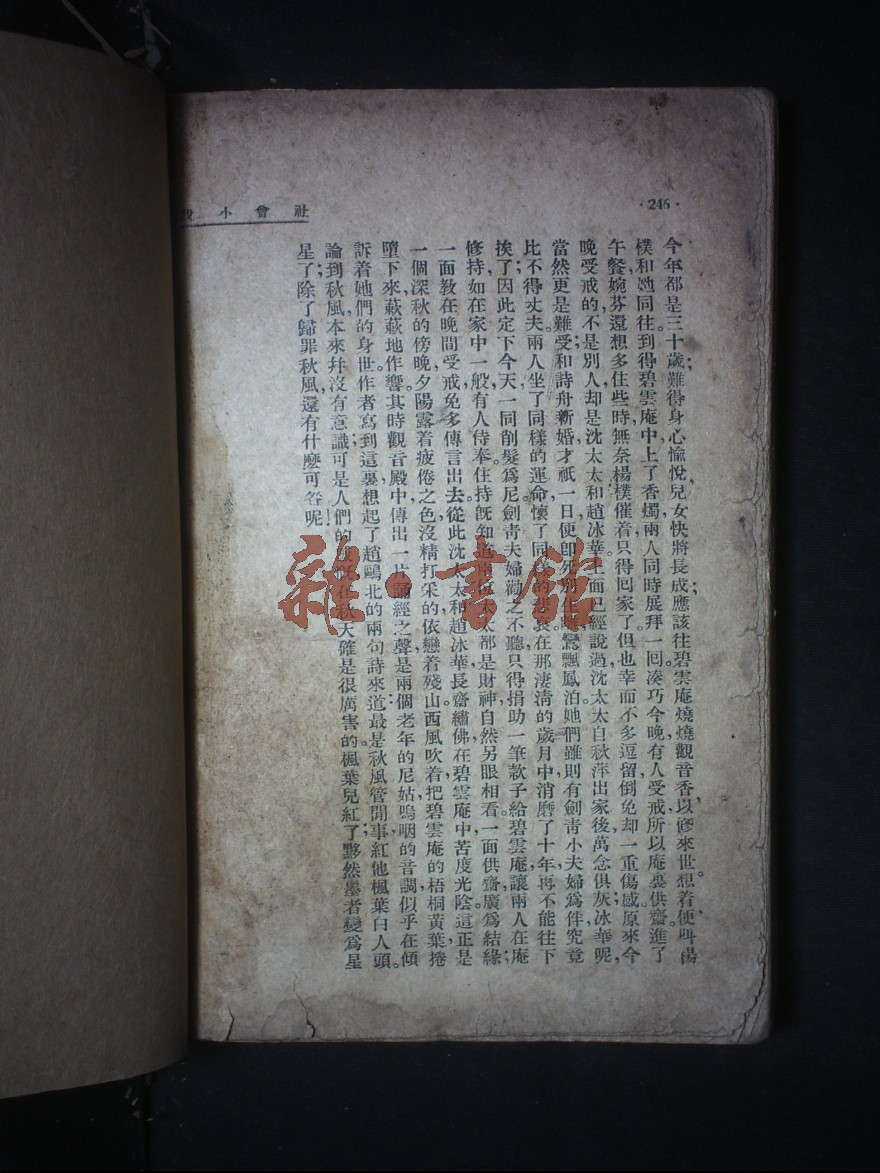 ·246·
社會小說
今年都是三十歲;難得身心愉悅,兒女快將長成,應該往碧雲庵燒燒觀音香,以修來世。想着,便叫楊
樸和她同往。到得碧雲庵中,上了香燭,兩人同時展拜一回。凑巧今晚有人受戒,所以庵裏供齋。進了
午餐,婉芬還想多住些時,無奈楊樸催着,只得囘家了。但也幸而不多逗留,倒免却一重傷感。原來今
晚受戒的,不是別人,却是沈太太和趙冰華。上面已經說過,沈太太自秋萍出家後,萬念俱灰;冰華呢,
當然更是難受,和詩舟新婚才祇一日,便卽死別生離,鸞飄鳳泊。她們雖則有劍靑小夫婦爲伴,究竟
比不得丈夫,兩人坐了同樣的運命,懷了同樣的悲哀,在那淒清的歲月中,消磨了十年,再不能往下
挨了,因此定下今天,一同削髮爲尼。劍靑夫婦勸之不聽,只得捐助一筆款子給碧雲庵,讓兩人在庵
修持,如在家中一般,有人侍奉。住持旣知道兩位太太都是財神,自然另眼相看,一面供齋,廣爲結緣;
一面敎在晚間受戒,免多傳言出去。從此沈太太和趙冰華長齋繡佛,在碧雲庵中苦度光陰。這正是
一個深秋的傍晚,夕陽露着疲倦之色,沒精打采的依戀着殘山,西風吹着,把碧雲庵的梧桐黃葉捲
墮下來,蔌蔌地作響。其時觀音殿中傳出一片誦經之聲,是兩個老年的尼姑,嗚咽的音調,似乎在傾
訴着她們的身世。作者寫到這裏,想起了趙鷗北的兩句詩來,道最是秋風管閒事,紅他楓葉白人頭。
論到秋風,本來幷沒有意識;可是人們的感慨,在秋天確是很厲害的,楓葉兒紅了,黟然墨者變爲星
星了,除了歸罪秋風,還有什麽可咎呢!
雜·書館